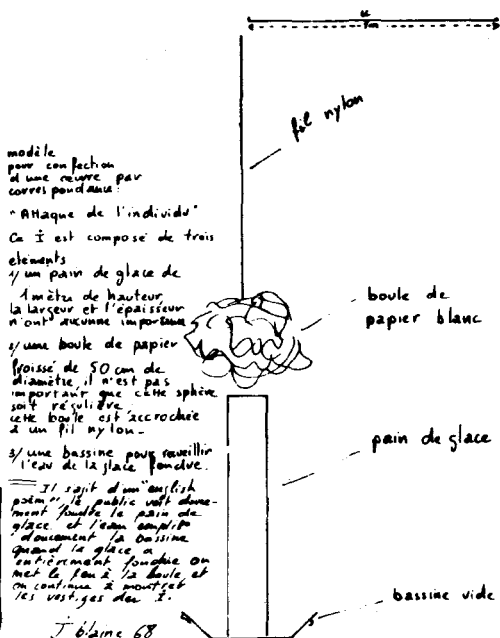 1m
fil nylon
modèle
pour confection
d'une œuvre par
correspondance:
"Attaque de l'individu"
Ce İ est composé de trois
elements
1/ un pain de glace de
1 mètre de hauteur,
la largeur et l'épaisseur
n'ont aucunne importance
2/ une boule de papier
froissé de 50 cm de
diamètre, il n'est pas
important que cette sphère
soit régulière.
cette boule est accrochée
à un fil nylon.
3/ une bassine pour receuillir
l'eau de la glace fondue.
Il sajit d'un "english
poèm" le public voit douce-
ment fondre le pain de
glace et l'eau emplir
doucement la bassine
quand la glace a
entièrement fondue on
met le feu à la boule et
on continue à montrer
les vestiges du İ.
J blaine 68
boule de
papier blanc
pain de glace
bassine vide